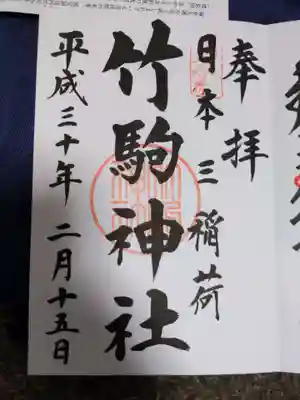 奉拝
日本三稲荷
竹駒神社
平成三十年 二月十五日